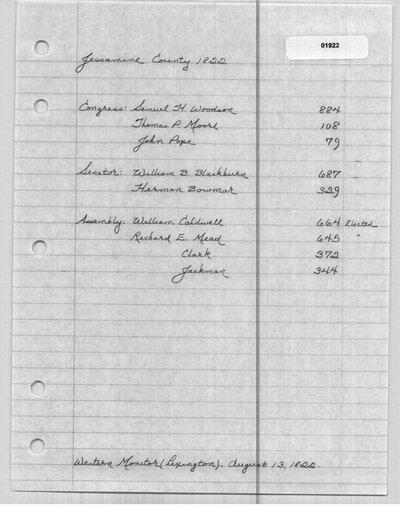 01922
Jessamine County 1822
Congress: Samuel H. Woodson 884
Thomas P. Moore 108
John Pope 79
Senator: William B. Blackburn 687
Herman Bowmar 329
Assembly: William Caldwell 664 Elected
Richard E. Mead 645 "
Clark 372
Jackman 344
Western Monitor (Lexington). August 13, 1822.